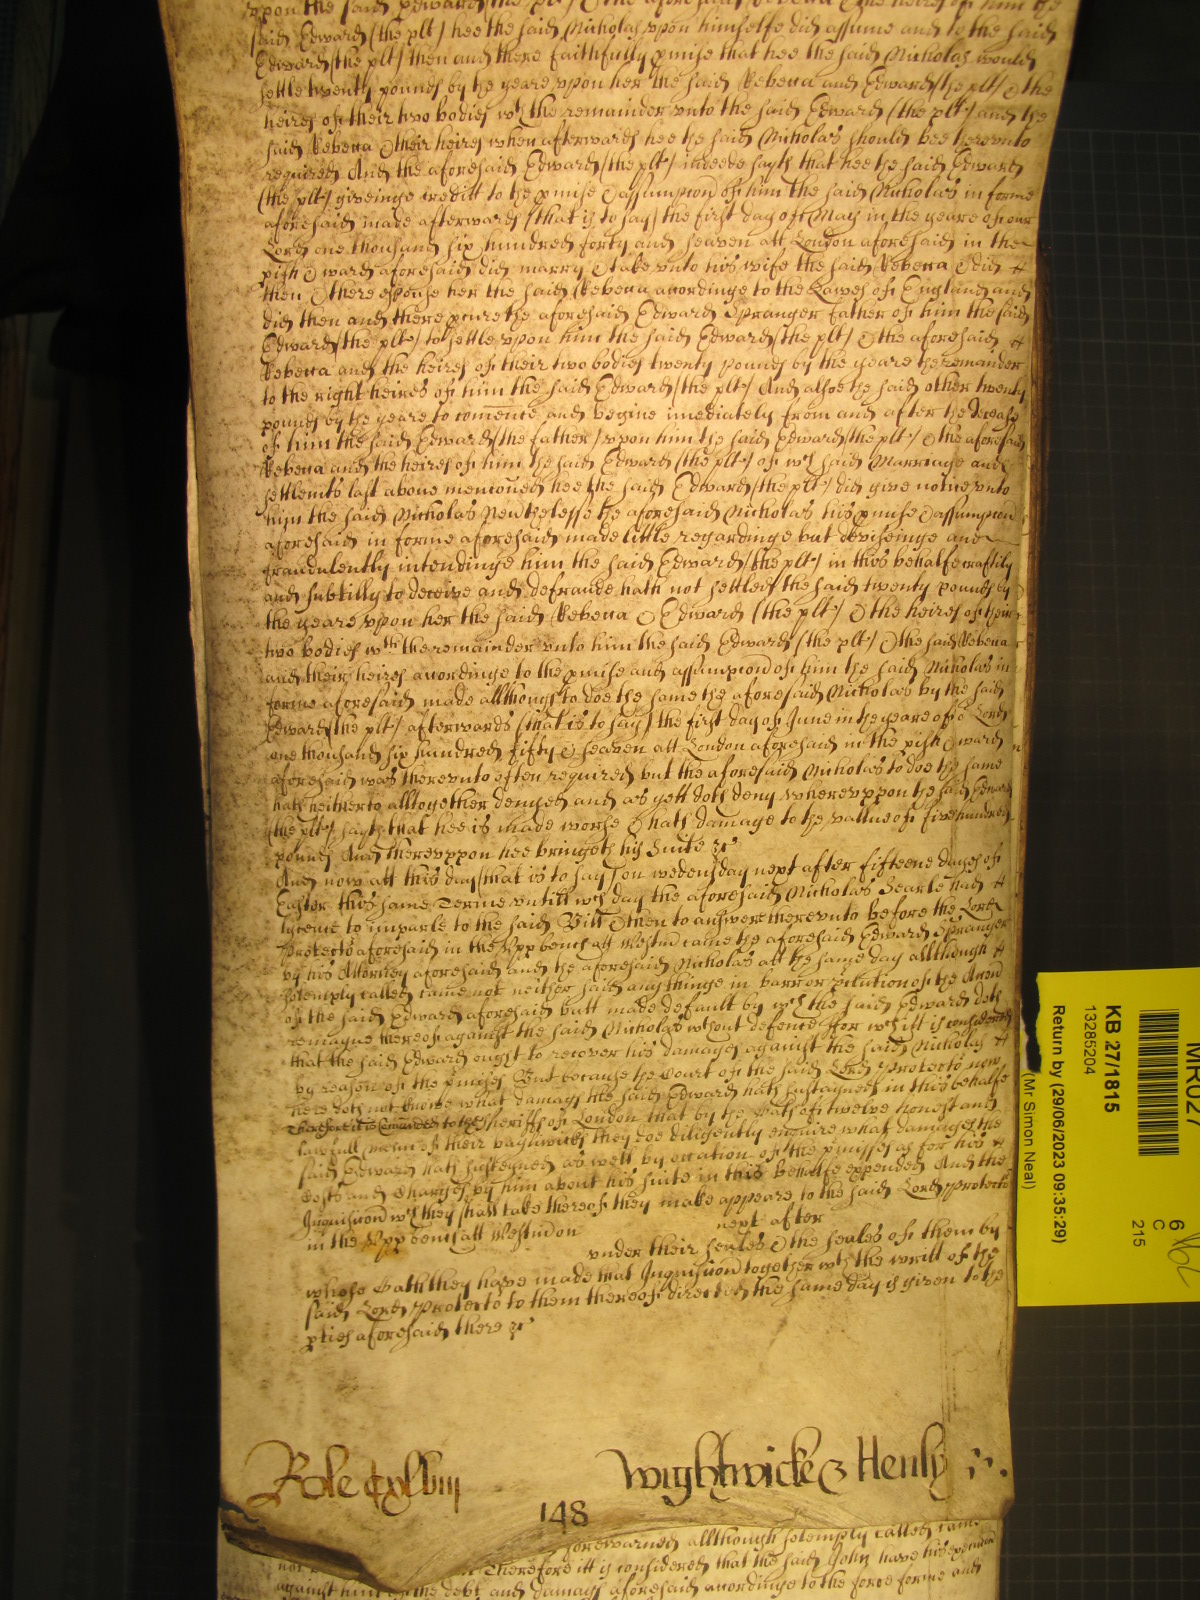 vpon the said Edward (the plt) & the aforesaid Rebecca & the heires of him the
said Edward (the plt) hee the said Nicholas vpon himselfe did assume and to the said
Edward (the plt) then and there faithfully pmise that hee the said Nicholas would
settle twenty pounds by the yeare vpon her the said Rebecca and Edward (the plt) & the
heires of their two bodies wth the remainder vnto the said Edward (the plt) and the
said Rebecca & their heires when afterwards hee the said Nicholas should bee therevnto
required And the aforesaid Edward (the plt) indeede sayth that hee the said Edward
(the plt) giveinge creditt to the pmise & assumpcon of him the said Nicholas in forme
aforesaid made afterwards (that is to say) the first day of May in the yeare of our
Lord one thousand six hundred forty and seaven att London aforesaid in the
pish & ward aforesaid did marry & take vnto his wife the said Rebecca & did
then & there espouse her the said Rebecca accordinge to the Lawes of England and
did then and there pcure the aforesaid Edward Spranger father of him the said
Edward (the plt) to settle vpon him the said Edward (the plt) & the aforesaid
Rebecca and the heires of their two bodies twenty pounds by the yeare the remainder
to the right heires of him the said Edward (the plt) And alsoe the said other twenty
pounds by the yeare to comence and begine imediately from and after the decease
of him the said Edward (the father) vpon him the said Edward (the plt) & the aforesaid
Rebecca and the heires of him the said Edward (the plt) of wch said Marriage and
settlemts last above menconed hee the said Edward (the plt) did give notice vnto
him the said Nicholas Neuthelesse the aforesaid Nicholas his pmise & assumpcon
aforesaid in forme aforesaid made little regardinge but deviseinge and
fraudulently intendinge him the said Edward (the plt) in this behalfe craftily
and subtilly to deceive and defraude hath not settled the said twenty pounds by
the yeare vpon her the said Rebecca & Edward (the plt) & the heires of their
two bodies wth the remainder vnto him the said Edward (the plt) & the said Rebecca
and their heires accordinge to the pmise and assumpcon of him the said Nicholas in
forme aforesaid made allthough to doe the same the aforesaid Nicholas by the said
Edward (the plt) afterwards (that is to say) the first day of June in the yeare of or Lord
one thousand six hundred fifty & seaven att London aforesaid in the pish & ward
aforesaid was therevnto often required but the aforesaid Nicholas to doe the same
hath hitherto alltogether denyed and as yett doth deny wherevppon the said Edward
(the plt) sayth that hee is made worse & hath damage to the vallue of five hundred
pounds And therevppon hee bringeth his suite &c
And now att this day (that is to say) on wedensday next after fifteene dayes of
Easter this same Terme vntill wch day the aforesaid Nicholas Searle had
lycence to imparle to the said Bill & then to answere therevnto before the Lord
Protector aforesaid in the Vpp bench att Westmr came the aforesaid Edward Spranger
by his Attorney aforesaid and the aforesaid Nicholas att the same day allthough
solemply called came not neither said any thinge in barr or pclusion of the Accon
of the said Edward aforesaid butt made default by wch the said Edward doth
remayne thereof against the said Nicholas wthout defence ffor wch itt is considered
that the said Edward ought to recover his damages against the said Nicholas
by reason of the pmises But because the Court of the said Lord Protector now
here doth not knowe what damags the said Edward hath sustayned in this behalfe
Therefore it is Comanded to the sheriffs of London that by the Oath of twelve honest and
lawfull men of their baylwicke they doe diligently enquire what damages the
said Edward hath susteyned as well by occation of the pmisses as for his
Costs and Charges by him about his suite in this behalfe expended And the
Inquisicon wch they shall take thereof they make appeare to the said Lord Protector
in the Vpp bench att Westm on next after
vnder their seales & the seales of them by
whose Oath they have made that Inquisicon together wth the writt of the
said Lord Protector to them thereof directed the same day is given to the
pties aforesaid there &c
Role Cxlviij
Wightwicke & Henly
148
forewarned allthough solemply called came
not Therefore itt is considered that the said John have his execucon
against him of the debt and damags aforesaid accordinge to the force forme and
MR027
KB 27/1815
13285204
Return by (29/06/2023 09:35:29)
(Mr Simon Neal)
6
C
215